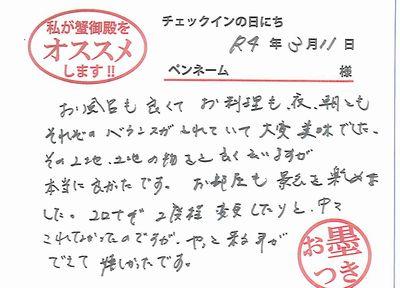 私が蟹御殿を
オススメ
します!!
チェックインの日にち
R4年3月11日
ペンネーム 様
お風呂も良くて お料理も、夜、朝とも
それぞれバランスがとれていて大変美味でした。
その土地、土地の物をと良く言いますが
本当に良かったです。 お部屋も 景色を楽めま
した。コロナで 2度程 変更したりと、中々
これてなかったのですが、やっと来る事が
できて 嬉しかったです。
お墨
つき